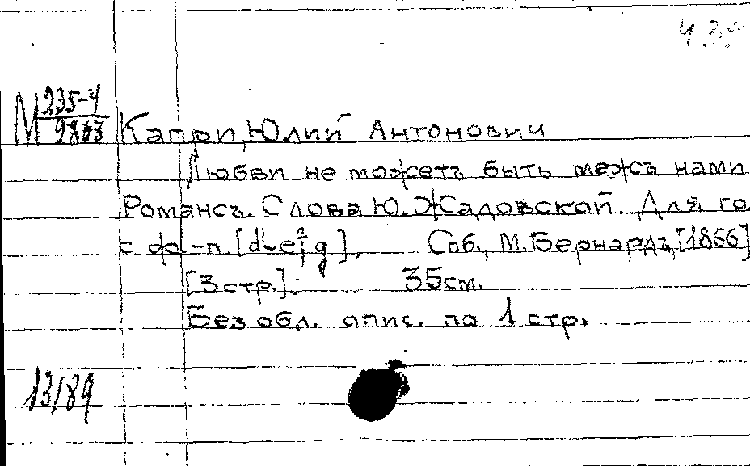 М 235-4
9863
Капри, Юлий Антонович
Любви не можетъ быть межъ нами
Романсъ. Слова Ю. Жадовской. Для го
с фф-п. [d-e g]. Спб., М. Бернардъ, [1866]
[3 стр.]. 35 см.
Без обл. опис. по 1 стр.
13/89